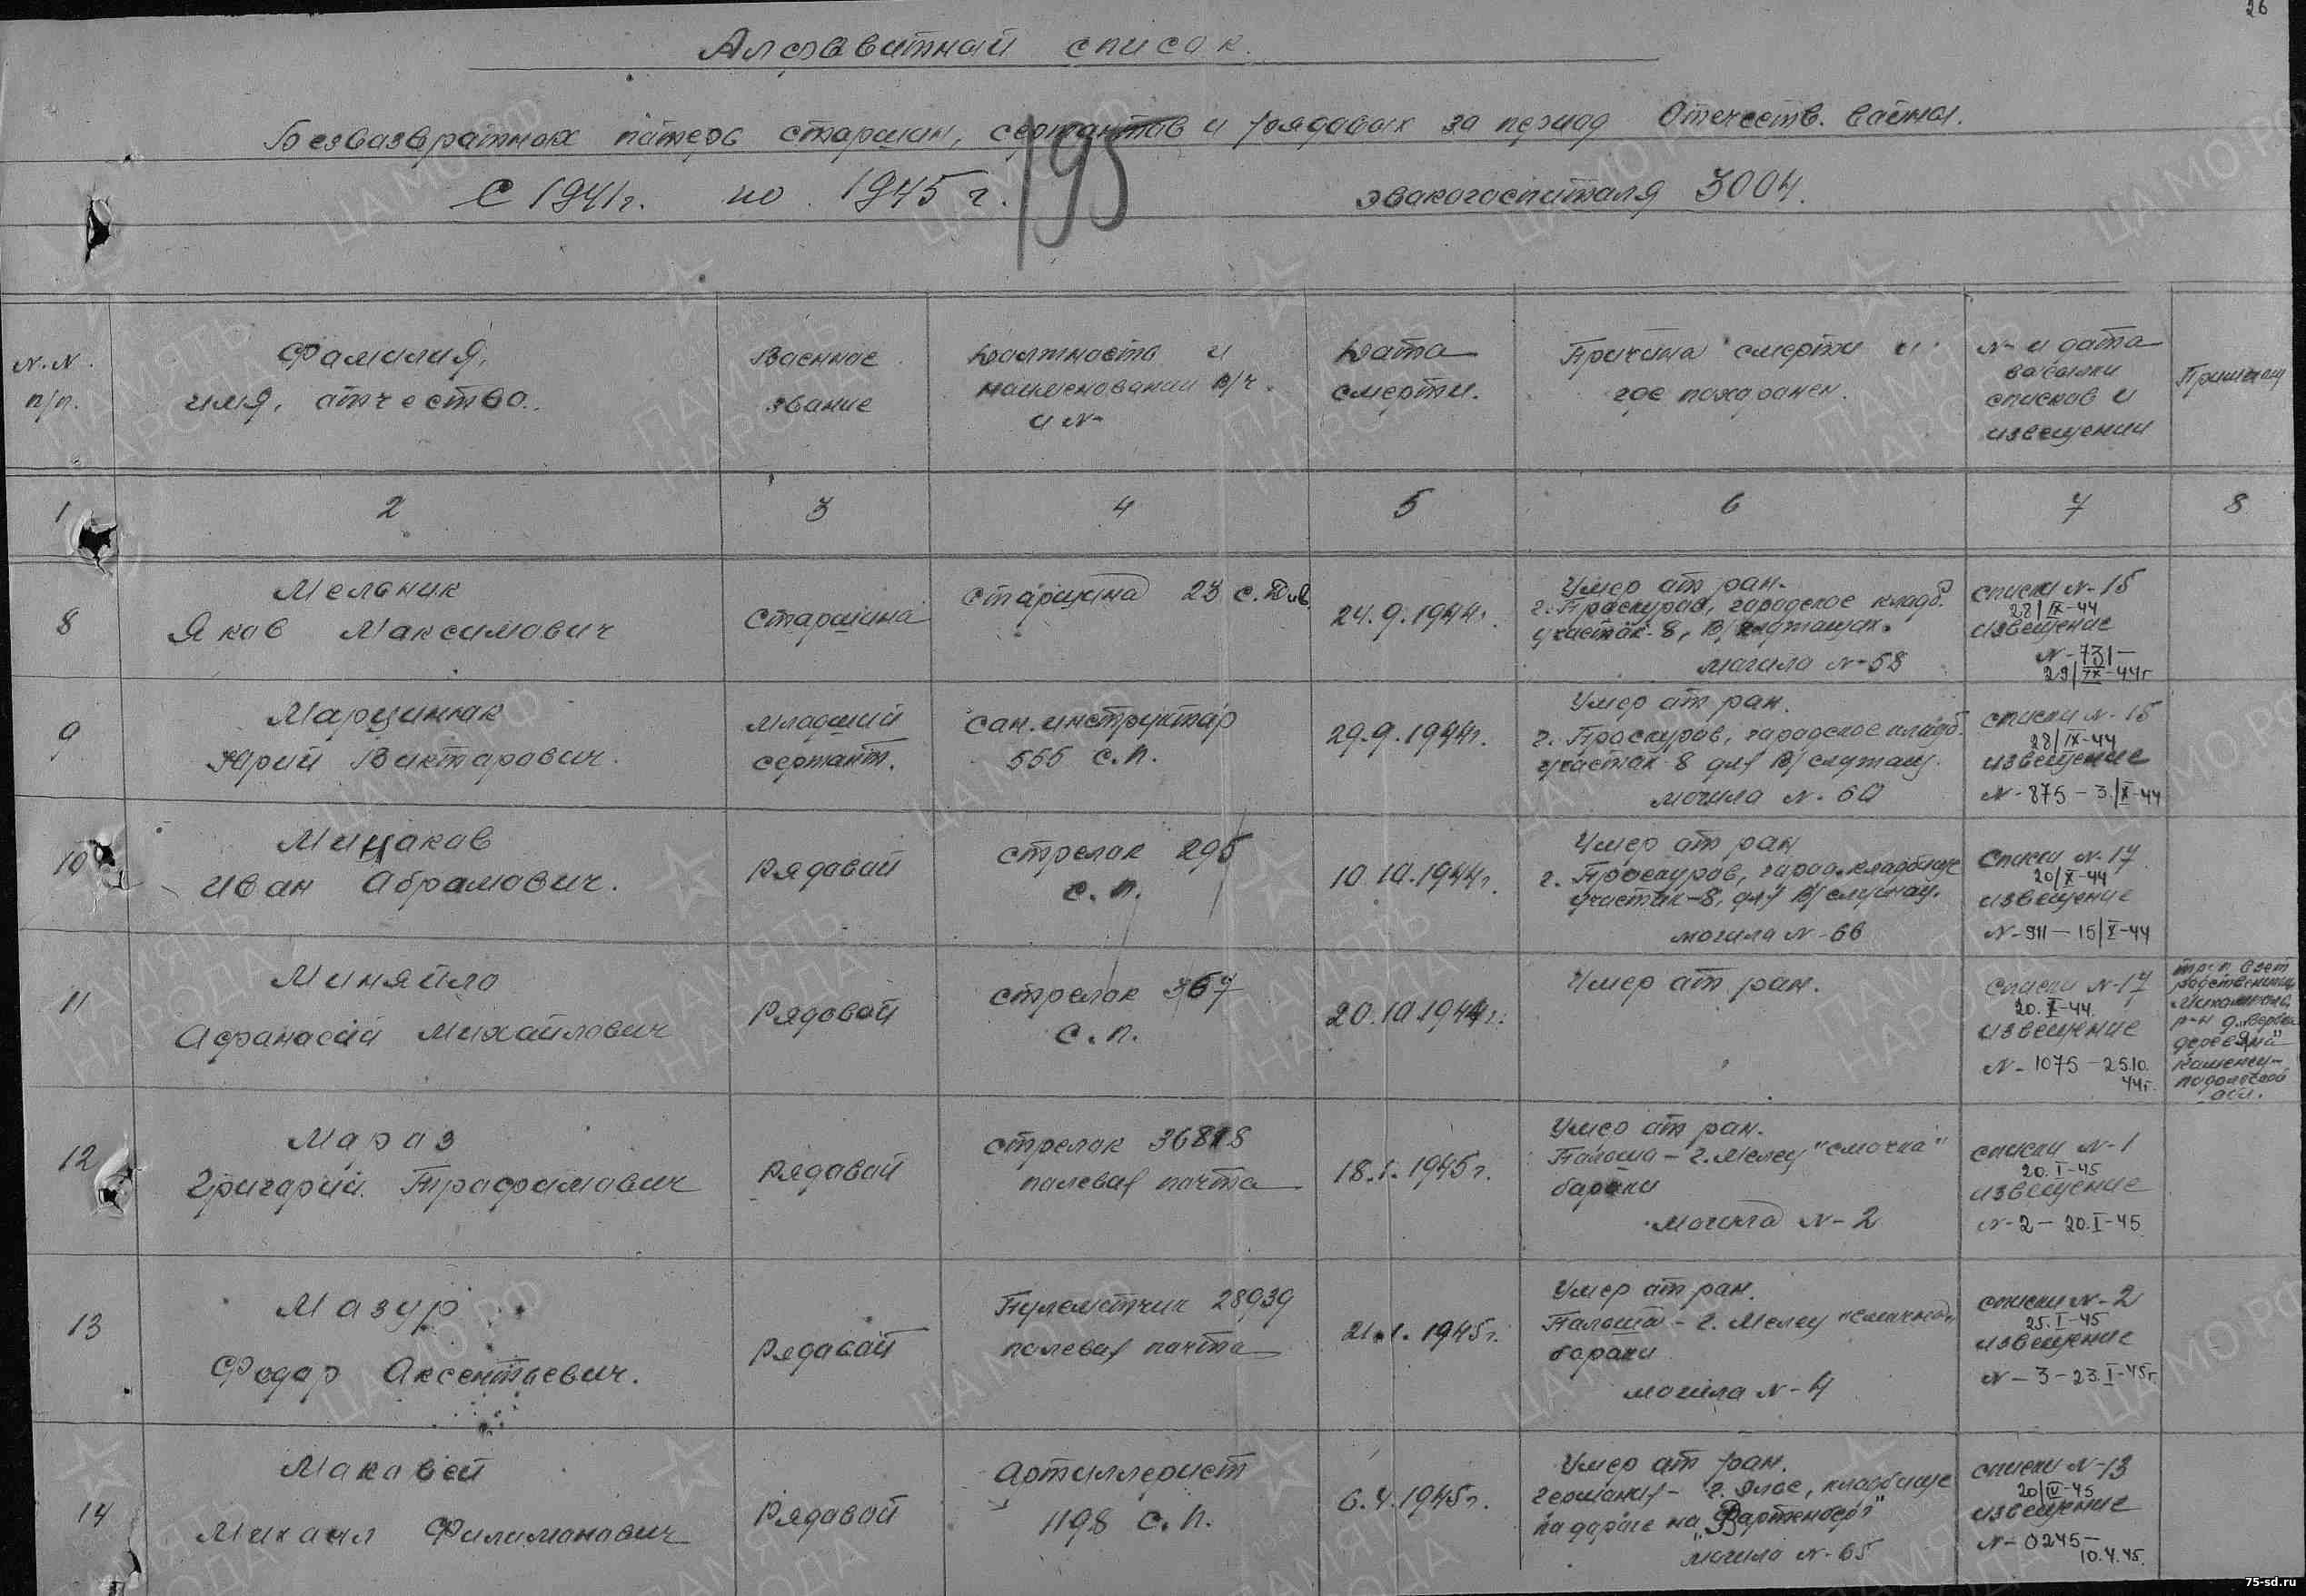 26
Алфавитный список.
Безвазвратных патерь старшин, сержантав и рядавых за период Отечеств. вайны.
С 1941г. по 1945 г. эвакогаспиталя 3004.
195
N.N п/п.
Фамилия, имя, атчество.
Ваенное звание
Должнасть и наименовании в/ч. и N-
Дата смерти.
Причина смерти и где пахаранен.
N- и дата высылки спискав и извещении
1 2 3 4 5 6 7 8
8
Мельник
Яков Максимович
старшина
старшина 23 с. Див.
24.9.1944г.
Умер ат ран.
г. Праскурав, гарадское кладб.
участак-8,
магила N-58
списки N-15
28/IX-44
извещение
N-731-
29/IX-44г
9
Марцинюк
Юрий Виктарович.
младший
сержант.
сан.инструктар
555 с.п.
29.9.1944г.
Умер ат ран.
г. Проскурав, гарадское кладб.
участак 8 для В/служащ.
могила N-60
списки N-15
28/IX-44
извещение
N-875-3/X-44
10
Мицаков
Иван Абрамович.
Рядавай
стрелак 295
с.п.
10.10.1944г.
Умер ат ран
г. Проскуров, гарод.кладбище
участак-8, для В/служащ.
могила N-66
Списки N-17
20/X-44
извещение
N-911-15/X-44
11
Миняйло
Афанасий Михайлович
Рядовой
стрелак 367
с.п.
20.10.1944г.
Умер ат ран.
списки N-17
20.X-44.
извещение
N-1075-25.10.
44г.
родственники
каменец-
падольской
обл.
12
Мараз
Григарий Трафимавич
Рядавай
стрелак 36818
палевая пачта
18.1.1945г.
Умер ат ран.
Польша - г. Мелец
бараки
магила N-2
списки N-1
20.I-45
извещение
N-2-20.I-45
13
Мазур
Фодар Аксентьевич.
Рядавай
Пулеметчик 28939
палевая пачта
21.1.1945г.
Умер ат ран.
Польша - г. Мелец
бараки
могила N-4
списки N-2
25.I-45
извещение
N-3-23.I-45г
14
Макавей
Михаил Филиманавич
Рядавай
Артиллерист
1198 с.п.
6.4.1945г.
Умер ат ран.
Германия - г. Элас, кладбище
па дароге на
магила N-65
списки N-13
20/IV-45
извещение
N-0245-
10.4.45.
ПАМЯТЬ НАРОДА
ЦАМО.РФ
75-sd.ru